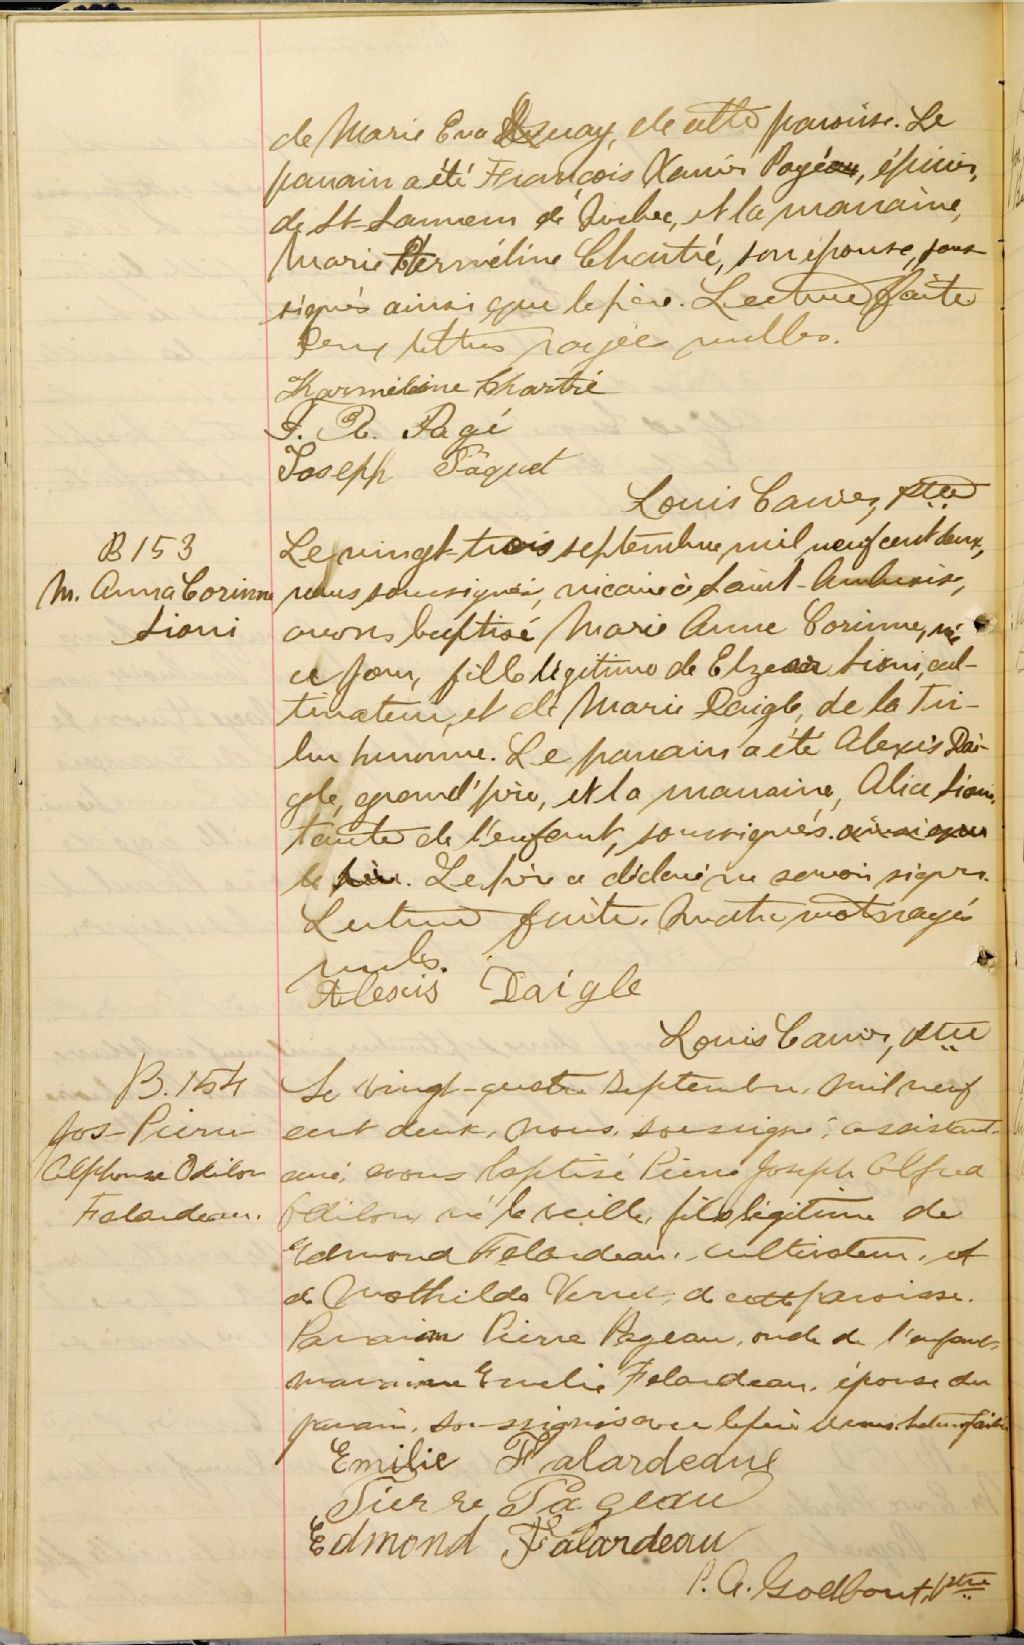 de Marie Eva , de cette paroisse. Le
parrain a été François Xavier Pagé, épicier,
de St-Sauveur de Québec, et la marraine,
Marie Herméline Chartré, son épouse, sous-
signés ainsi que le père. Lecture faite
Deux lettres rayées nulles.
Harméline Chartré
F. X. Pagé
Joseph Paquet
Louis Cannon, ptre
B 153
M. Anna Corinne
Sioui
Le vingt-trois septembre, mil neuf cent deux,
nous soussigné, vicaire à Saint-Ambroise,
avons baptisé Marie Anne Corinne, née
ce jour, fille légitime de Elzear Sioui, cul-
tivateur, et de Marie Daigle, de la Tri-
bu huronne. Le parrain a été Alexis Dai-
gle, grand'père, et la marraine, Alice Sioui,
tante de l'enfant, soussignés. ainsi que
le père. Le père a déclaré ne savoir signer.
Lecture faite. Quatre mots rayés
nuls.
Alexis Daigle
Louis Cannon, ptre
B. 154
Jos-Pierre
Alphonse Odilon
Falardeau.
Le vingt-quatre Septembre, mil neuf
cent deux, nous, soussigné, assistant-
curé, avons baptisé Pierre Joseph Alfred
Odilon, né la veille, fils légitime de
Edmond Falardeau, cultivateur, et
de Mathilde Verret, de cette paroisse.
Parrain Pierre Pageau, oncle de l'enfant,
marraine Emelie Falardeau, épouse du
parrain, soussignés avec le père & nous. Lecture faite
Emilie Falardeau
Pierre Pageau
Edmond Falardeau
P. A. Godbout, Ptre